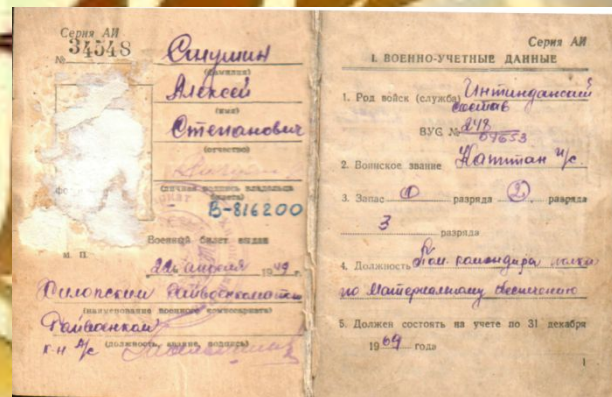 Серия АИ
№ 34548
(фамилия)
Алексей
(имя)
Степанович
(отчество)
(личная подпись владельца билета)
В-816200
Военный билет выдан
М. П.
22 апреля 1949 г.
(наименование военного комиссариата)
Райвоенком
(должность, звание, подпись)
Серия АИ
I. ВОЕННО-УЧЕТНЫЕ ДАННЫЕ
1. Род войск (служба) Интендантский
состав
ВУС № 248
2. Воинское звание Капитан и/с
3. Запас 1 разряда 2 разряда
3 разряда
4. Должность Пом. командира полка
по материальному обеспечению
5. Должен состоять на учете по 31 декабря
1969 года
1